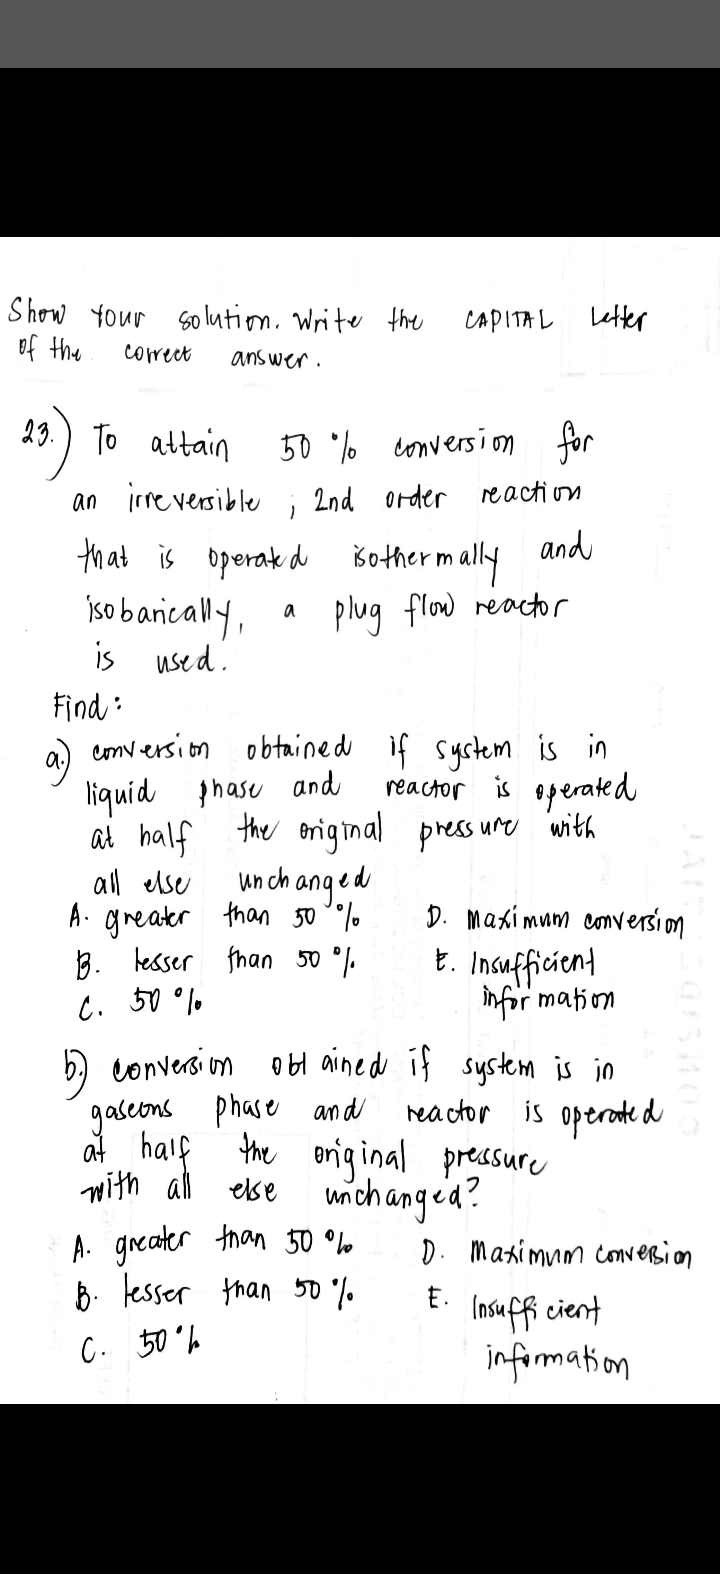 Show your solution. Write the CAPITAL Letter
of the correct answer.
23.) To attain 50 % conversion for
an irreversible, 2nd order reaction
that is operated isothermally and
isobarically, a plug flow reactor
is used.
Find:
a.) conversion obtained if system is in
liquid phase and reactor is operated
at half the original pressure with
all else unchanged
A. greater than 50 %
B. lesser than 50 %
C. 50 %
D. Maximum conversion
E. Insufficient
information
b.) conversion obtained if system is in
gaseous phase and reactor is operated
at half the original pressure
with all else unchanged?
A. greater than 50 %
B. lesser than 50 %
C. 50 %
D. Maximum conversion
E. Insufficient
information